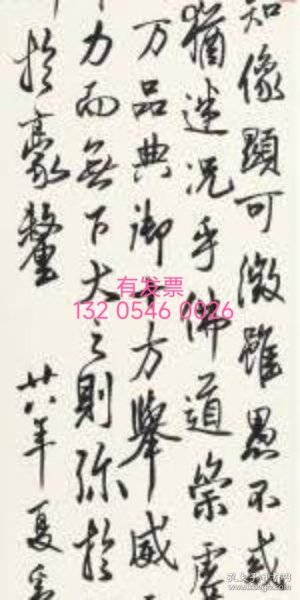 知像顯可徵雖愚不惑
猶迷況乎佛道崇虛
万品典御十方舉威
力而無下大之則弥於
於豪釐
廿八年夏
有发票
132 0546 0026